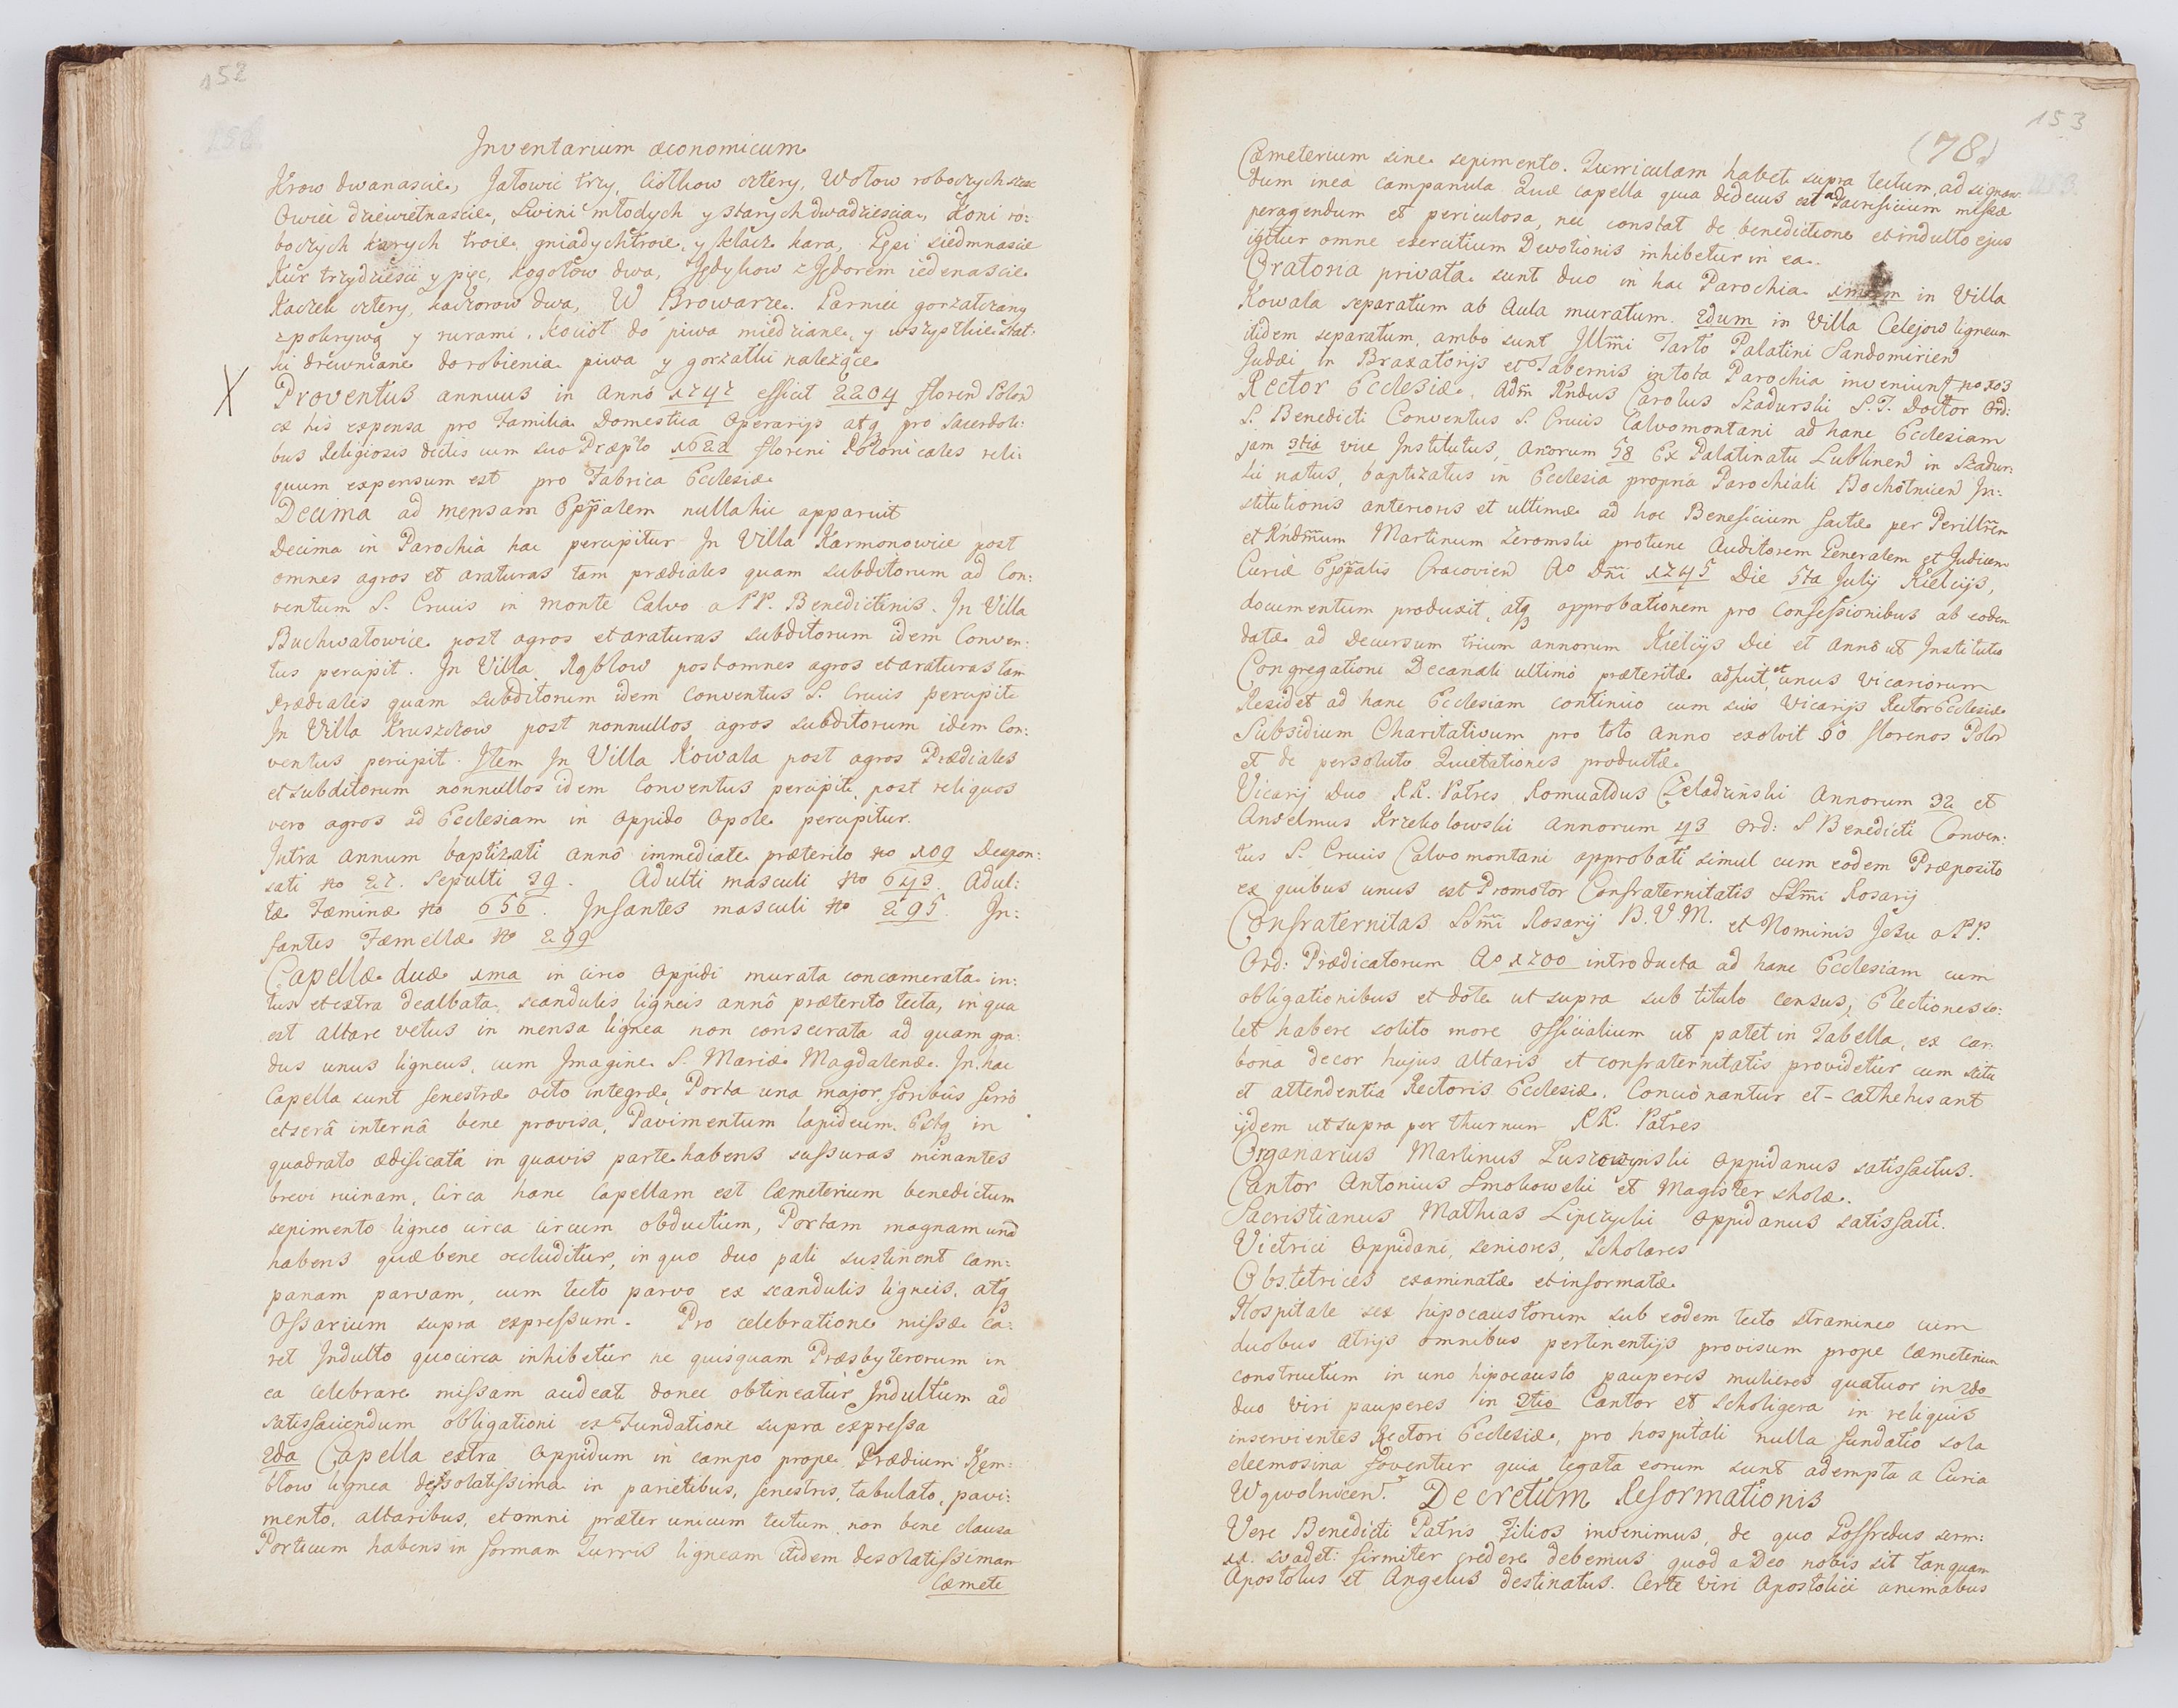 152
Inventarium œconomicum
Krow dwanascie, Jałowic trzy, Ciołkow cztery, Wołow roboczych szesc
Owiec dziewietnascie, Swini młodych y starych dwadziescia, Koni ro:
boczych karych troie, gniadych troie, y klacz kara, Gęsi siedmnascie
Kur trzydziesci y pięc, kogotow dwa, Jędykow z Jędorem iedenascie
Kaczek cztery, kaczorow dwa, W Browarze. Garniec gorzałczany
z pokrywą y rurami, kocioł do piwa miedziane, y wszystkie stat:
ki drewniane do robienia piwa y gorzałki należące
X Proventus annuus in Anno 1747 efficit 2204 floren Polon
ex his expensa pro Familia Domestica Operarijs atq pro Sacerdoti:
bus Religiosis dictis cum suo Præpto 1622 floreni Polonicales reli:
quum expensum est pro Fabrica Ecclesiæ
Decima ad mensam Eppalem nulla hic apparuit
Decima in Parochia hac percipitur In Villa Karmonowice post
omnes agros et araturas tam prædiales quam subditorum ad Con:
ventum S. Crucis in monte Calvo a PP. Benedictinis. In Villa
Buchwałowice post agros et araturas subditorum idem Conven:
tus percipit. In Villa Rąblow post omnes agros et araturas tam
Prædiales quam subditorum idem Conventus S. Crucis percipit
In Villa Kruszchow post nonnullos agros subditorum idem Con:
ventus percipit. Item In Villa Kowala post agros Prædiales
et subditorum nonnullos idem Conventus percipit, post reliquos
vero agros ad Ecclesiam in Oppido Opole percipitur.
Intra annum baptizati annô immediate præterito no 109 Despon:
sati no 27. Sepulti 39. Adulti masculi no 643. Adul:
tæ Fæminæ no 656. Infantes masculi no 295. In:
fantes Fæmellæ no 299
Capellæ duæ 1ma in circo Oppidi murata concamerata in:
tus et extra dealbata, scandulis ligneis annô præterito tecta, in qua
est altare vetus in mensa lignea non consecrata ad quam gra:
dus unus ligneus, cum Imagine S. Mariæ Magdalenæ. In hac
Capella sunt fenestræ octo integræ, Porta una major foribus ferrô
et serâ internâ bene provisa, Pavimentum lapideum. Estq in
quadrato ædificata in quavis parte habens fissuras minantes
brevi ruinam, Circa hanc Capellam est Cæmeterium benedictum
sepimento ligneo circa circum obductum, Portam magnam unâ
habens quæ bene occluditur, in quo duo pali sustinent cam:
panam parvam, cum tecto parvo ex scandulis ligneis, atq
Ossarium supra expressum. Pro celebratione missæ ca:
ret Indulto quocirca inhibetur ne quisquam Præsbyterorum in
ea celebrare missam audeat donec obtineatur Indultum ad
satisfaciendum obligationi ex Fundatione supra expressa
2da Capella extra Oppidum in campo prope Prædium Kem:
błow lignea desolatissima in parietibus, fenestris, tabulato, pavi:
mento, altaribus, et omni præter unicum tectum, non bene clausa
Porticum habens in formam Turris ligneam itidem desolatissimam
Cæmete
153
(78)
Cæmeterium sine sepimento. Turriculam habet supra tectum, ad signan:
dum in ea campanula Quæ capella quia dedecus est ad Sacrificium missæ
peragendum et periculosa, nec constat de benedictione et indulto ejus
igitur omne exercitium Devotionis inhibetur in ea.
Oratoria privata sunt duo in hac Parochia 1mum in Villa
Kowala separatum ab Aula muratum. 2dum in Villa Celejow ligneum
itidem separatum, ambo sunt Illmi Tarło Palatini Sandomirien
Judæi in Braxatorijs et Tabernis in tota Parochia inveniunt no 103
Rector Ecclesiæ. Adm Rndus Carolus Szadurski S.T. Doctor Ord:
S. Benedicti Conventus S. Crucis Calvomontani ad hanc Ecclesiam
jam 3tia vice Institutus, Anorum 58 Ex Palatinatu Lublinen in Szadur:
ki natus, baptizatus in Ecclesia propria Parochiali Bochotnicen In:
stitutionis anterioris et ultimæ ad hoc Beneficium factæ per Perillrem
et Rndmum Martinum Zeromski protunc Auditorem Generalem et Judicem
Curiæ Eppalis Cracovien Ao Dni 1745 Die 5ta Julij Kielcijs,
documentum produxit, atq approbationem pro Confessionibus ab eodem
datæ ad decursum trium annorum Kielcijs Die et Annô ut Institutio
Congregationi Decanali ultimo præteritæ adfuit, et unus vicariorum
Residet ad hanc Ecclesiam continuo cum suis Vicarijs Rector Ecclesiæ
Subsidium Charitativum pro toto anno exolvit 50 florenos Polon
et de persoluto Quietationes productæ
Vicarij Duo RR. Patres Romualdus Czeladzinski Annorum 32 et
Anselmus Krzekotowski Annorum 43 Ord: S Benedicti Conven:
tus S. Crucis Calvomontani approbati simul cum eodem Præposito
ex quibus unus est Promotor Confraternitatis SSmi Rosarij
Confraternitas SSmi Rosarij B.V.M. et Nominis Jesu a PP.
Ord: Prædicatorum Ao 1700 introducta ad hanc Ecclesiam cum
obligationibus et dote ut supra sub titulo census, Electiones so:
let habere solito more Officialium ut patet in Tabella, ex car:
bona decor hujus altaris et confraternitatis providetur cum scitu
et attendentia Rectoris Ecclesiæ. Concionantur et cathehisant
ijdem ut supra per thurnum RR. Patres
Organarius Martinus oppidanus satisfactus.
Cantor Antonius Smokowski et Magister scholæ.
Sacristianus Mathias Lipczycki oppidanus satisfacti.
Victrici Oppidani, seniores, scholares
Obstetrices examinatæ et informatæ
Hospitale sex hipocaustorum sub eodem tecto stramineo cum
duobus atrijs omnibus pertinentijs provisum prope Cæmeterium
constructum in uno hipocausto pauperes mulieres quatuor in 2do
duo viri pauperes in 3tio Cantor et scholigera in reliquis
inservientes Rectori Ecclesiæ, pro hospitali nulla fundatio sola
eleemosina foventur quia legata eorum sunt adempta a Curia
Wąwolnicen. Decretum Reformationis
Vere Benedicti Patris Filios invenimus, de quo Goffredus serm:
svadet: firmiter credere debemus quod a Deo nobis sit tanquam
Apostolus et Angelus destinatus. Certe viri Apostolici animabus